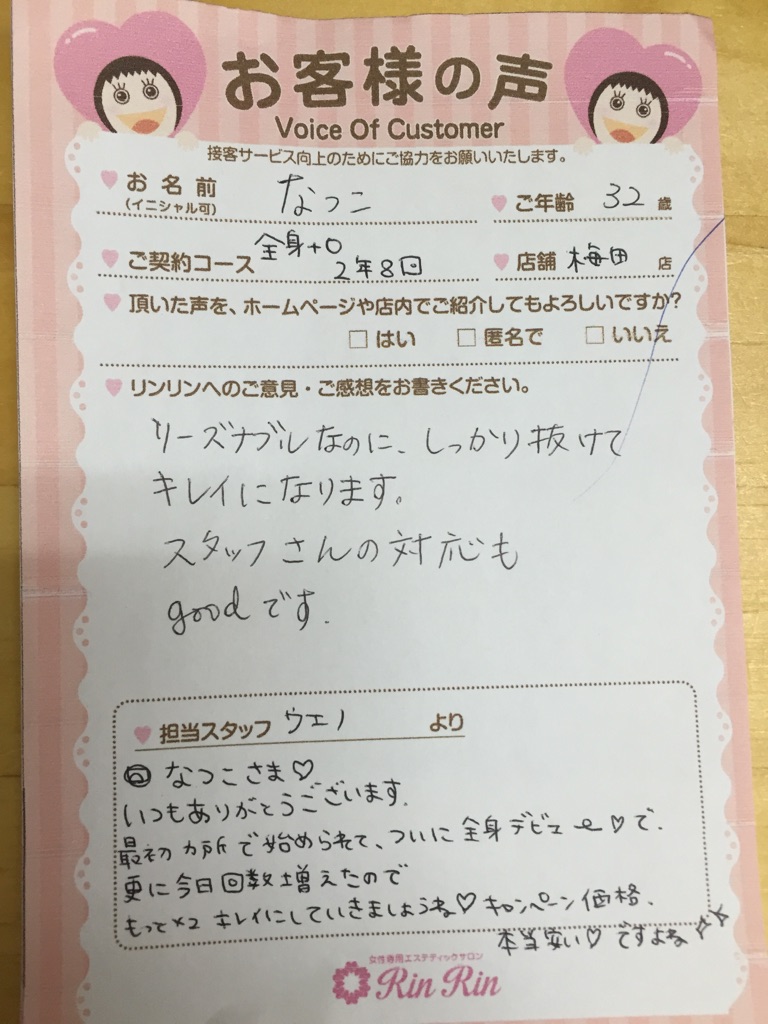 お客様の声
Voice Of Customer
接客サービス向上のためにご協力をお願いいたします。
お名前 なつこ ご年齢 32 歳
(イニシャル可)
ご契約コース 全身+O 2年8回 店舗 梅田 店
頂いた声を、ホームページや店内でご紹介してもよろしいですか?
□ はい □ 匿名で □ いいえ
リンリンへのご意見・ご感想をお書きください。
リーズナブルなのに、しっかり抜けて
キレイになります。
スタッフさんの対応も
goodです.
担当スタッフ ウエノ より
なつこさま♡
いつもありがとうございます.
最初 カ所で始められて、ついに全身デビュー♡で.
更に今日回数増えたので
もって×2 キレイにしていきましょうね♡ キャンペーン価格.
本当安い♡ですよね
女性専用エステティックサロン
Rin Rin